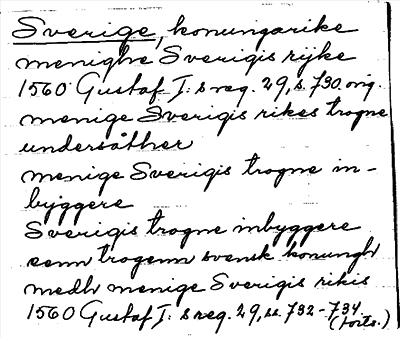 Sverige, konungarike
menighe Sverigis rijke
1560 Gustaf I:s reg. 29, s. 730. orig.
menige Sverigis rikes trogne
undersåther
menige Sverigis trogne in-
byggere
Sverigis trogne inbyggere
senn trogenn svensk konungh
medh menige Sverigis rikis
1560 Gustaf I:s reg. 29, ss. 732-734
(forts.)